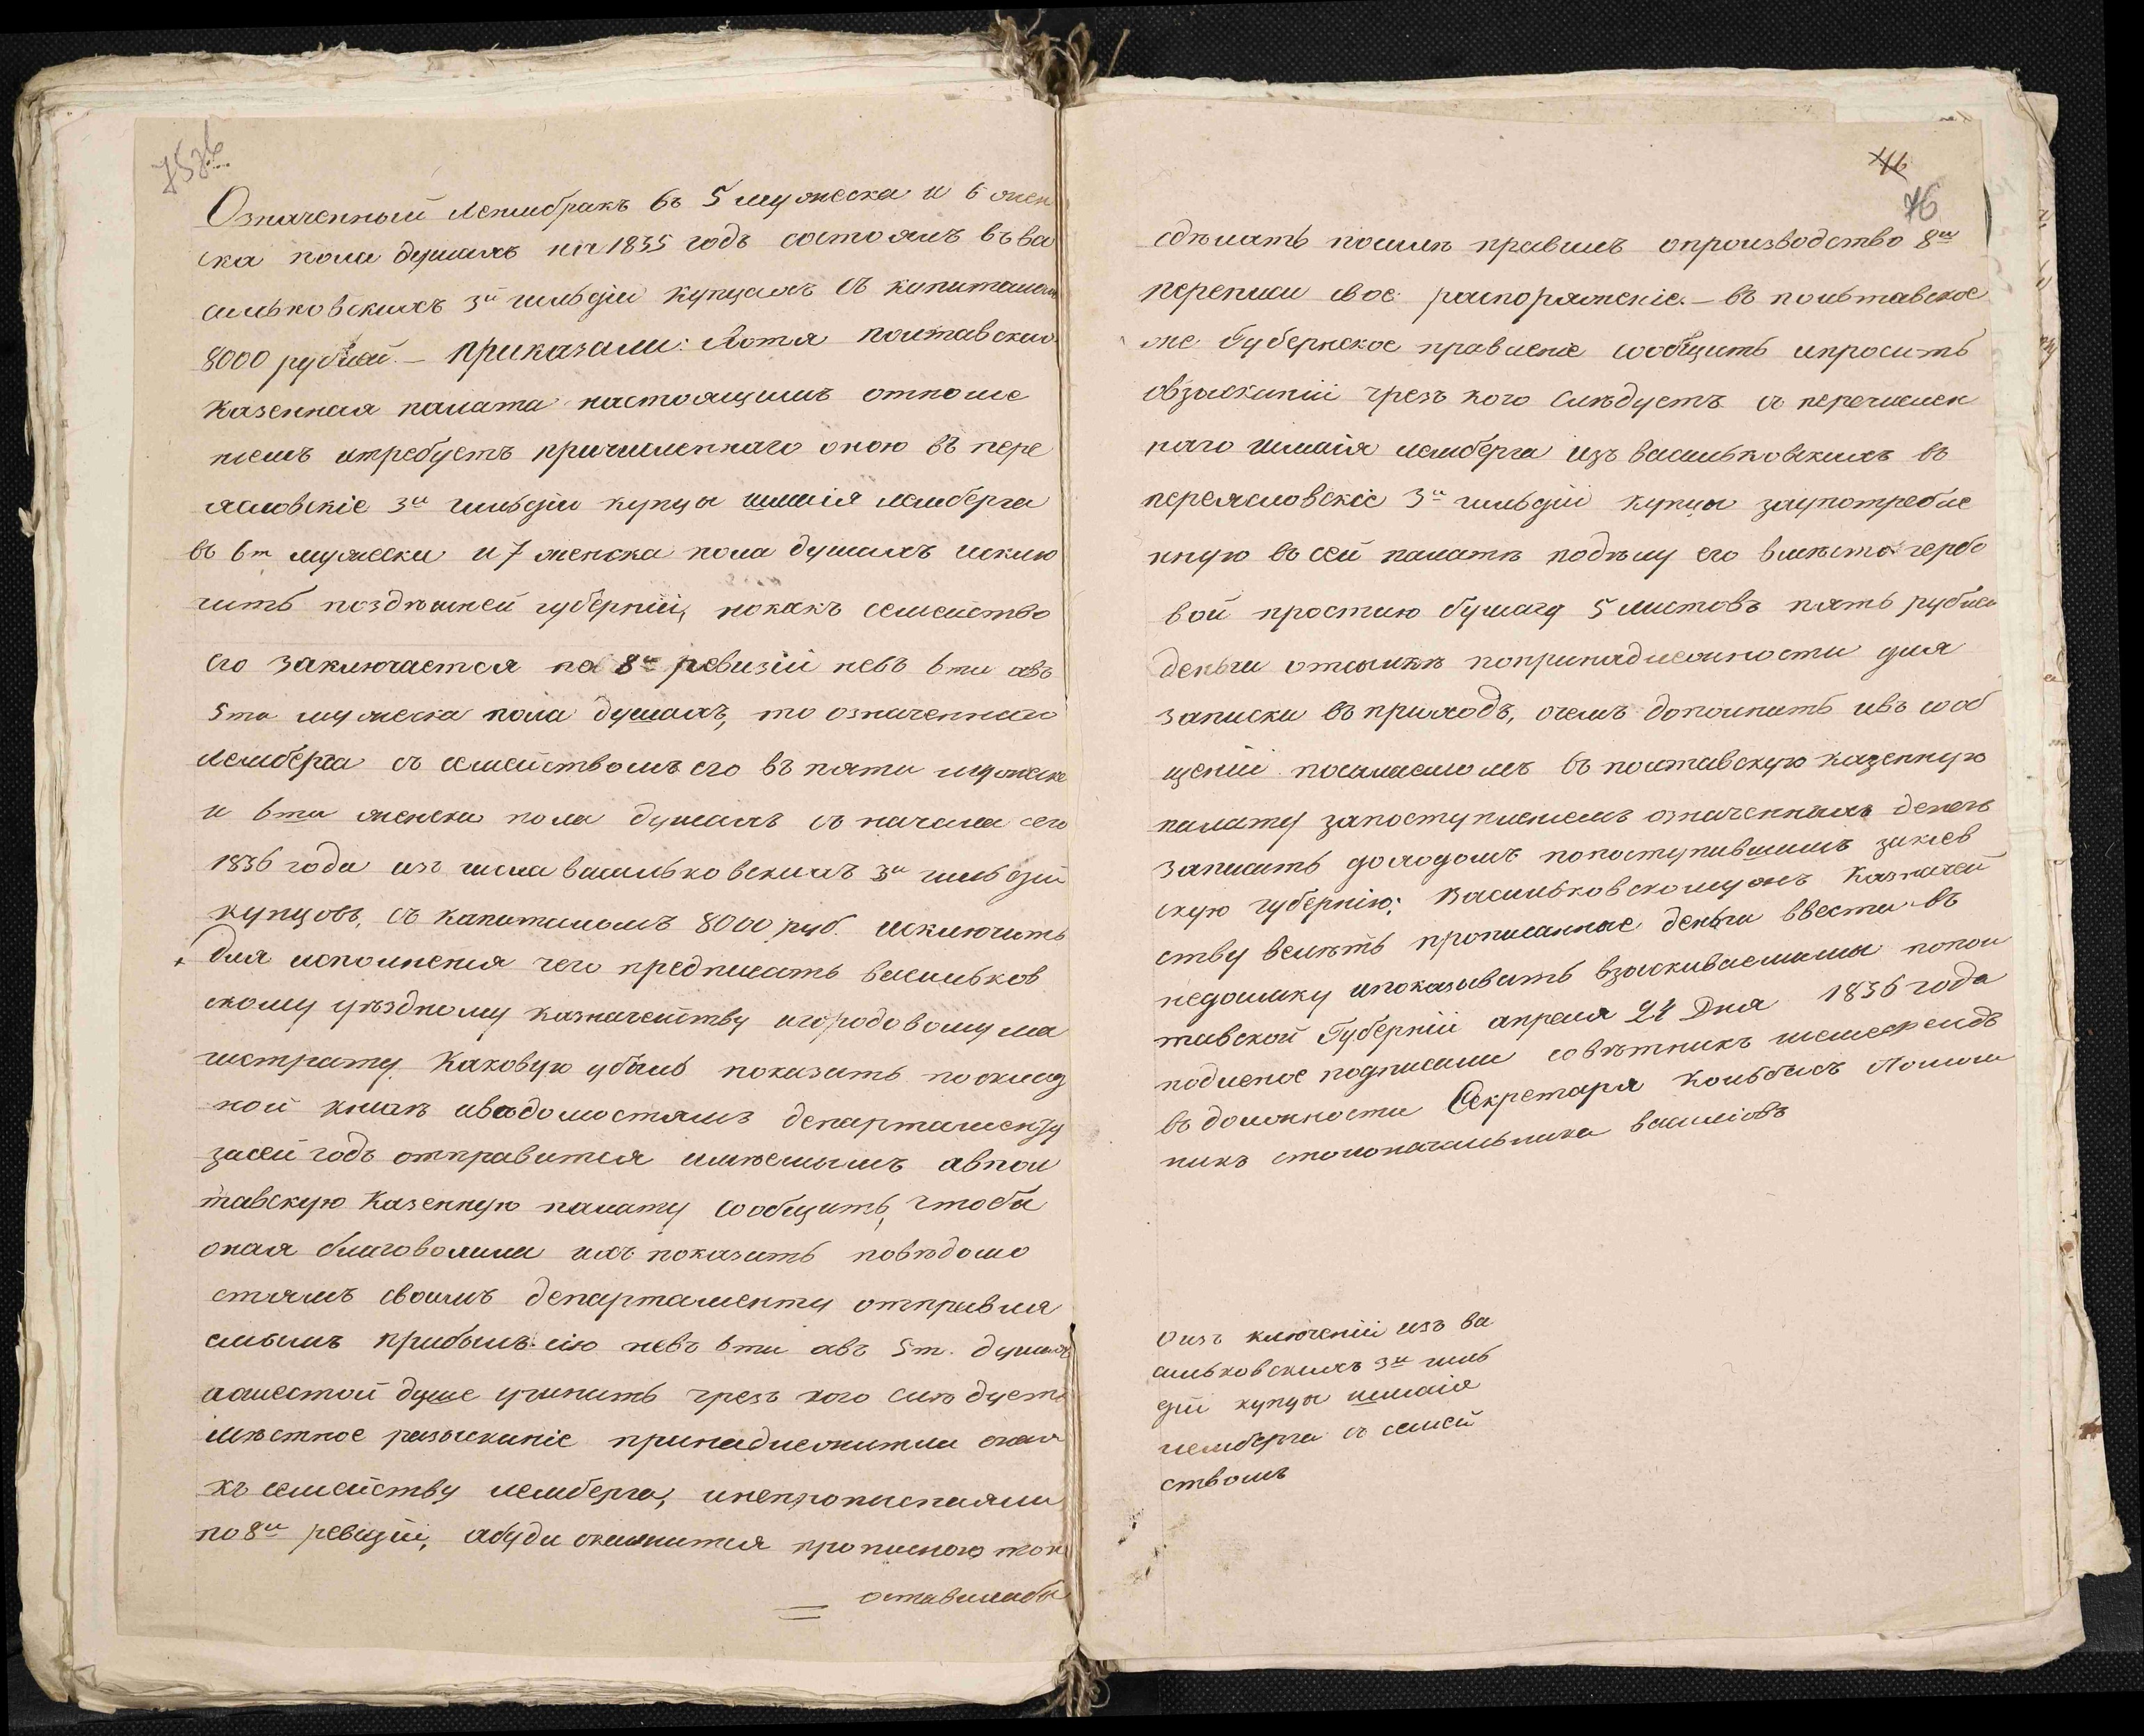 Означенный Лемибракъ въ 5 мужеска и 6 жен
ска пола душахъ на 1835 годъ состоялъ въ ва
сильковскихъ 3й гильдіи купцахъ съ капиталом
8000 рублей. – приказали: Хотя полтавская
Казенная палата настоящимъ отноше
ніемъ итребуетъ причисленнаго оною въ пере
ясловскіе 3й гильдіи купцы шмаія лемберга
въ 6ти мужески и 7 женска пола душахъ исклю
чить поздѣшней губерніи, нокакъ семейство
его заключается по 8й ревизіи невъ 6ти авъ
5ти мужеска пола душахъ, то означеннаго
Лемберга съ семействомъ его въ пяти мужеска
и 6ти женска пола душахъ съ начала сего
1836 года изъ числа васильковскихъ 3й гильдіи
купцовъ, съ капиталомъ 8000 руб. исключить
для исполненія чего предписать васильков
скому уѣздному казначейству игородовому ма
гистрату. Каковую убыль показать пооклад
ной книгѣ ивѣдомостямъ департаменту
засей годъ отправится имѣемымъ авпол
тавскую Казенную палату сообщить, чтобы
оная благоволила ихъ показать повѣдомо
стямъ своимъ департаменту отправля
емымъ прибылью невъ 6ти авъ 5т. душахъ
аошестой душе учинить чрезъ кого слѣдуетъ
мѣстное розысканіе принадлежитъли оная
къ семейству лемберга, инепрописаннали
по 8й ревизіи, абуди окажится прописною то
оставилабы
76
сдѣлать посилѣ правилъ опроизводство 8й
переписи свое распоряженіе. – въ полтавское
же Губернское правленіе сообщить ипросить
овзысканіи чрезъ кого слѣдуетъ съ перечислен
наго шмаія лемберга изъ васильковскихъ въ
переясловскіе 3й гильдіи купцы заупотребле
нную въ сей палатѣ подѣлу его вмѣсто гербо
вой простию бумагу 5 листовъ пять рублей
деньги отсылкѣ попринадлежности для
записки въ приходъ, очемъ дополнить ивъ сооб
щеніи посылаемомъ въ полтавскую казенную
палату запоступленіемъ означенныхъ денегъ
записать доходомъ попоступившимъ закіев
скую губернію; Васильковскомужъ Казначей
ству велѣть прописанные деньги ввести въ
недоимку ипоказывать взыскиваемымы попол
тавской Губерніи апреля 24 Дня 1836 года
подленое подписали совѣтникъ
въ должности Секретаря Помощ
никъ столоначальника василіовъ
Оизъ ключеніи изъ ва
сильковскихъ 3й гиль
діи купцы шмаія
лемберга съ семей
ствомъ